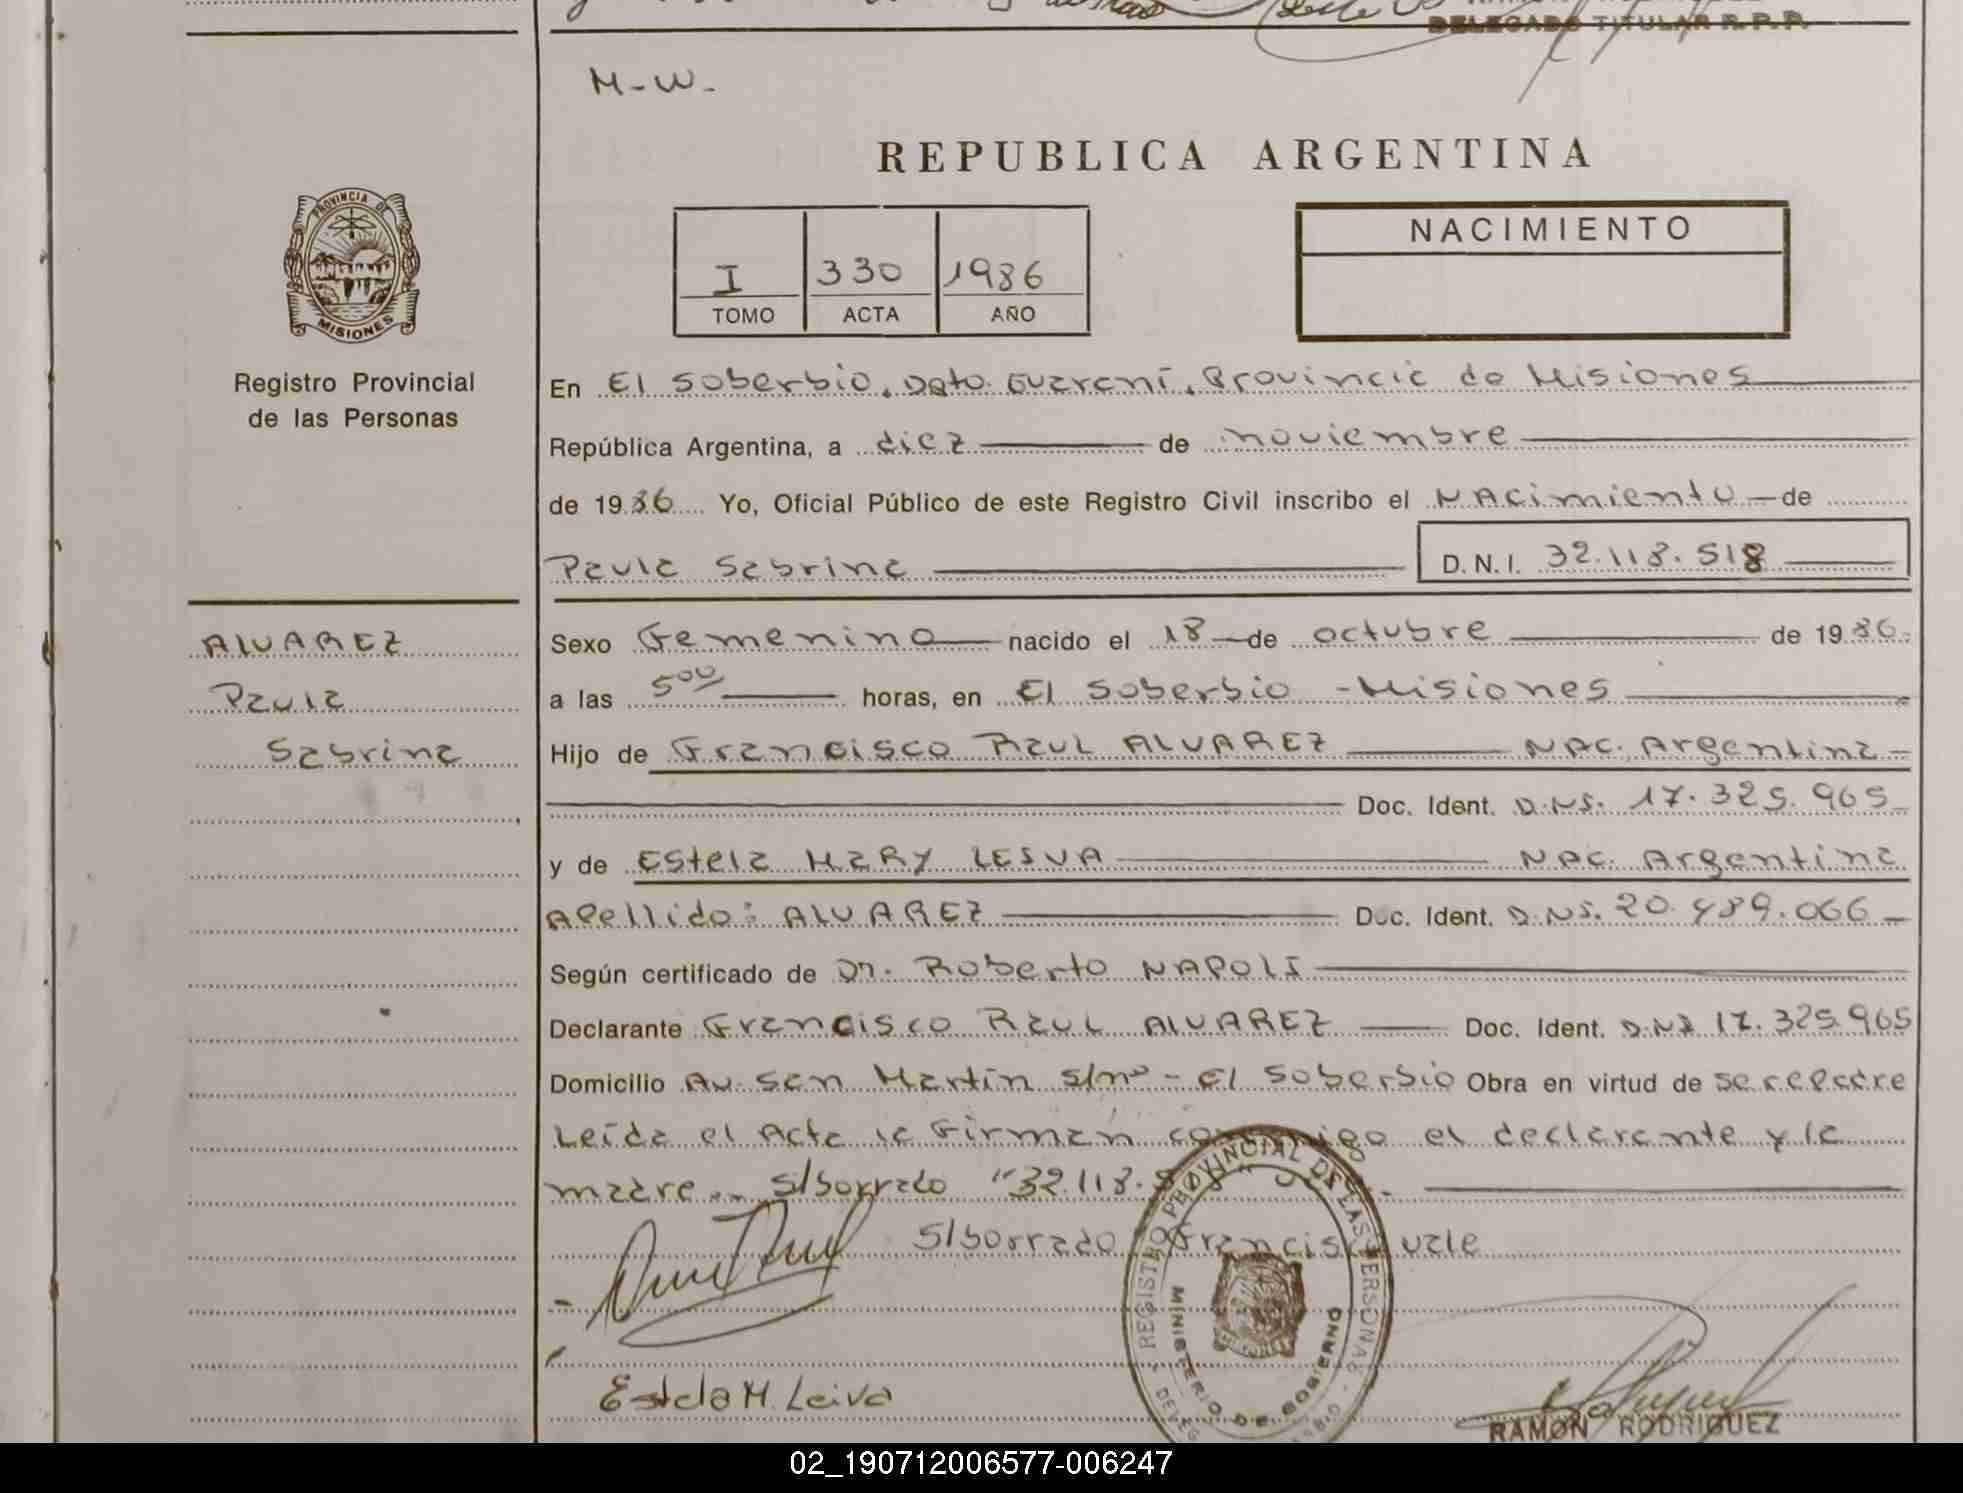 DELEGADO TITULAR R.P.P.
M-W-
REPUBLICA ARGENTINA
PROVINCIA DE
MISIONES
Registro Provincial
de las Personas
I 330 1986
TOMO ACTA AÑO
NACIMIENTO
En El Soberbio, Dpto. Guaraní, Provincia de Misiones
República Argentina, a diez de noviembre
de 1986 Yo, Oficial Público de este Registro Civil inscribo el NAcimiento de
Paula Sabrina D.N.I. 32.118.518
ALVAREZ
Paula
Sabrina
Sexo Femenino nacido el 18 de octubre de 1986.
a las 5 00 horas, en El Soberbio - Misiones
Hijo de Francisco Raul ALVAREZ NAC. Argentina
Doc. Ident. D.NI. 17.325.965
y de Estela MaRy LEIVA NAC. Argentina
Apellido: ALVAREZ Doc. Ident. D.NI. 20.489.066
Según certificado de Dr. Roberto NAPOLI
Declarante Francisco Raul ALVAREZ Doc. Ident. D.NI 17.325.965
Domicilio Av. San Martín s/nº - El Soberbio Obra en virtud de ser padre
Leída el Acta la Firman conmigo el declarante y la
madre.. S/borrado "32.118.5
S/borrado Francisco vale
REGISTRO PROVINCIAL DE LAS PERSONAS
MINISTERIO DE GOBIERNO
Estela M. Leiva
RAMON RODRIGUEZ
02_190712006577-006247